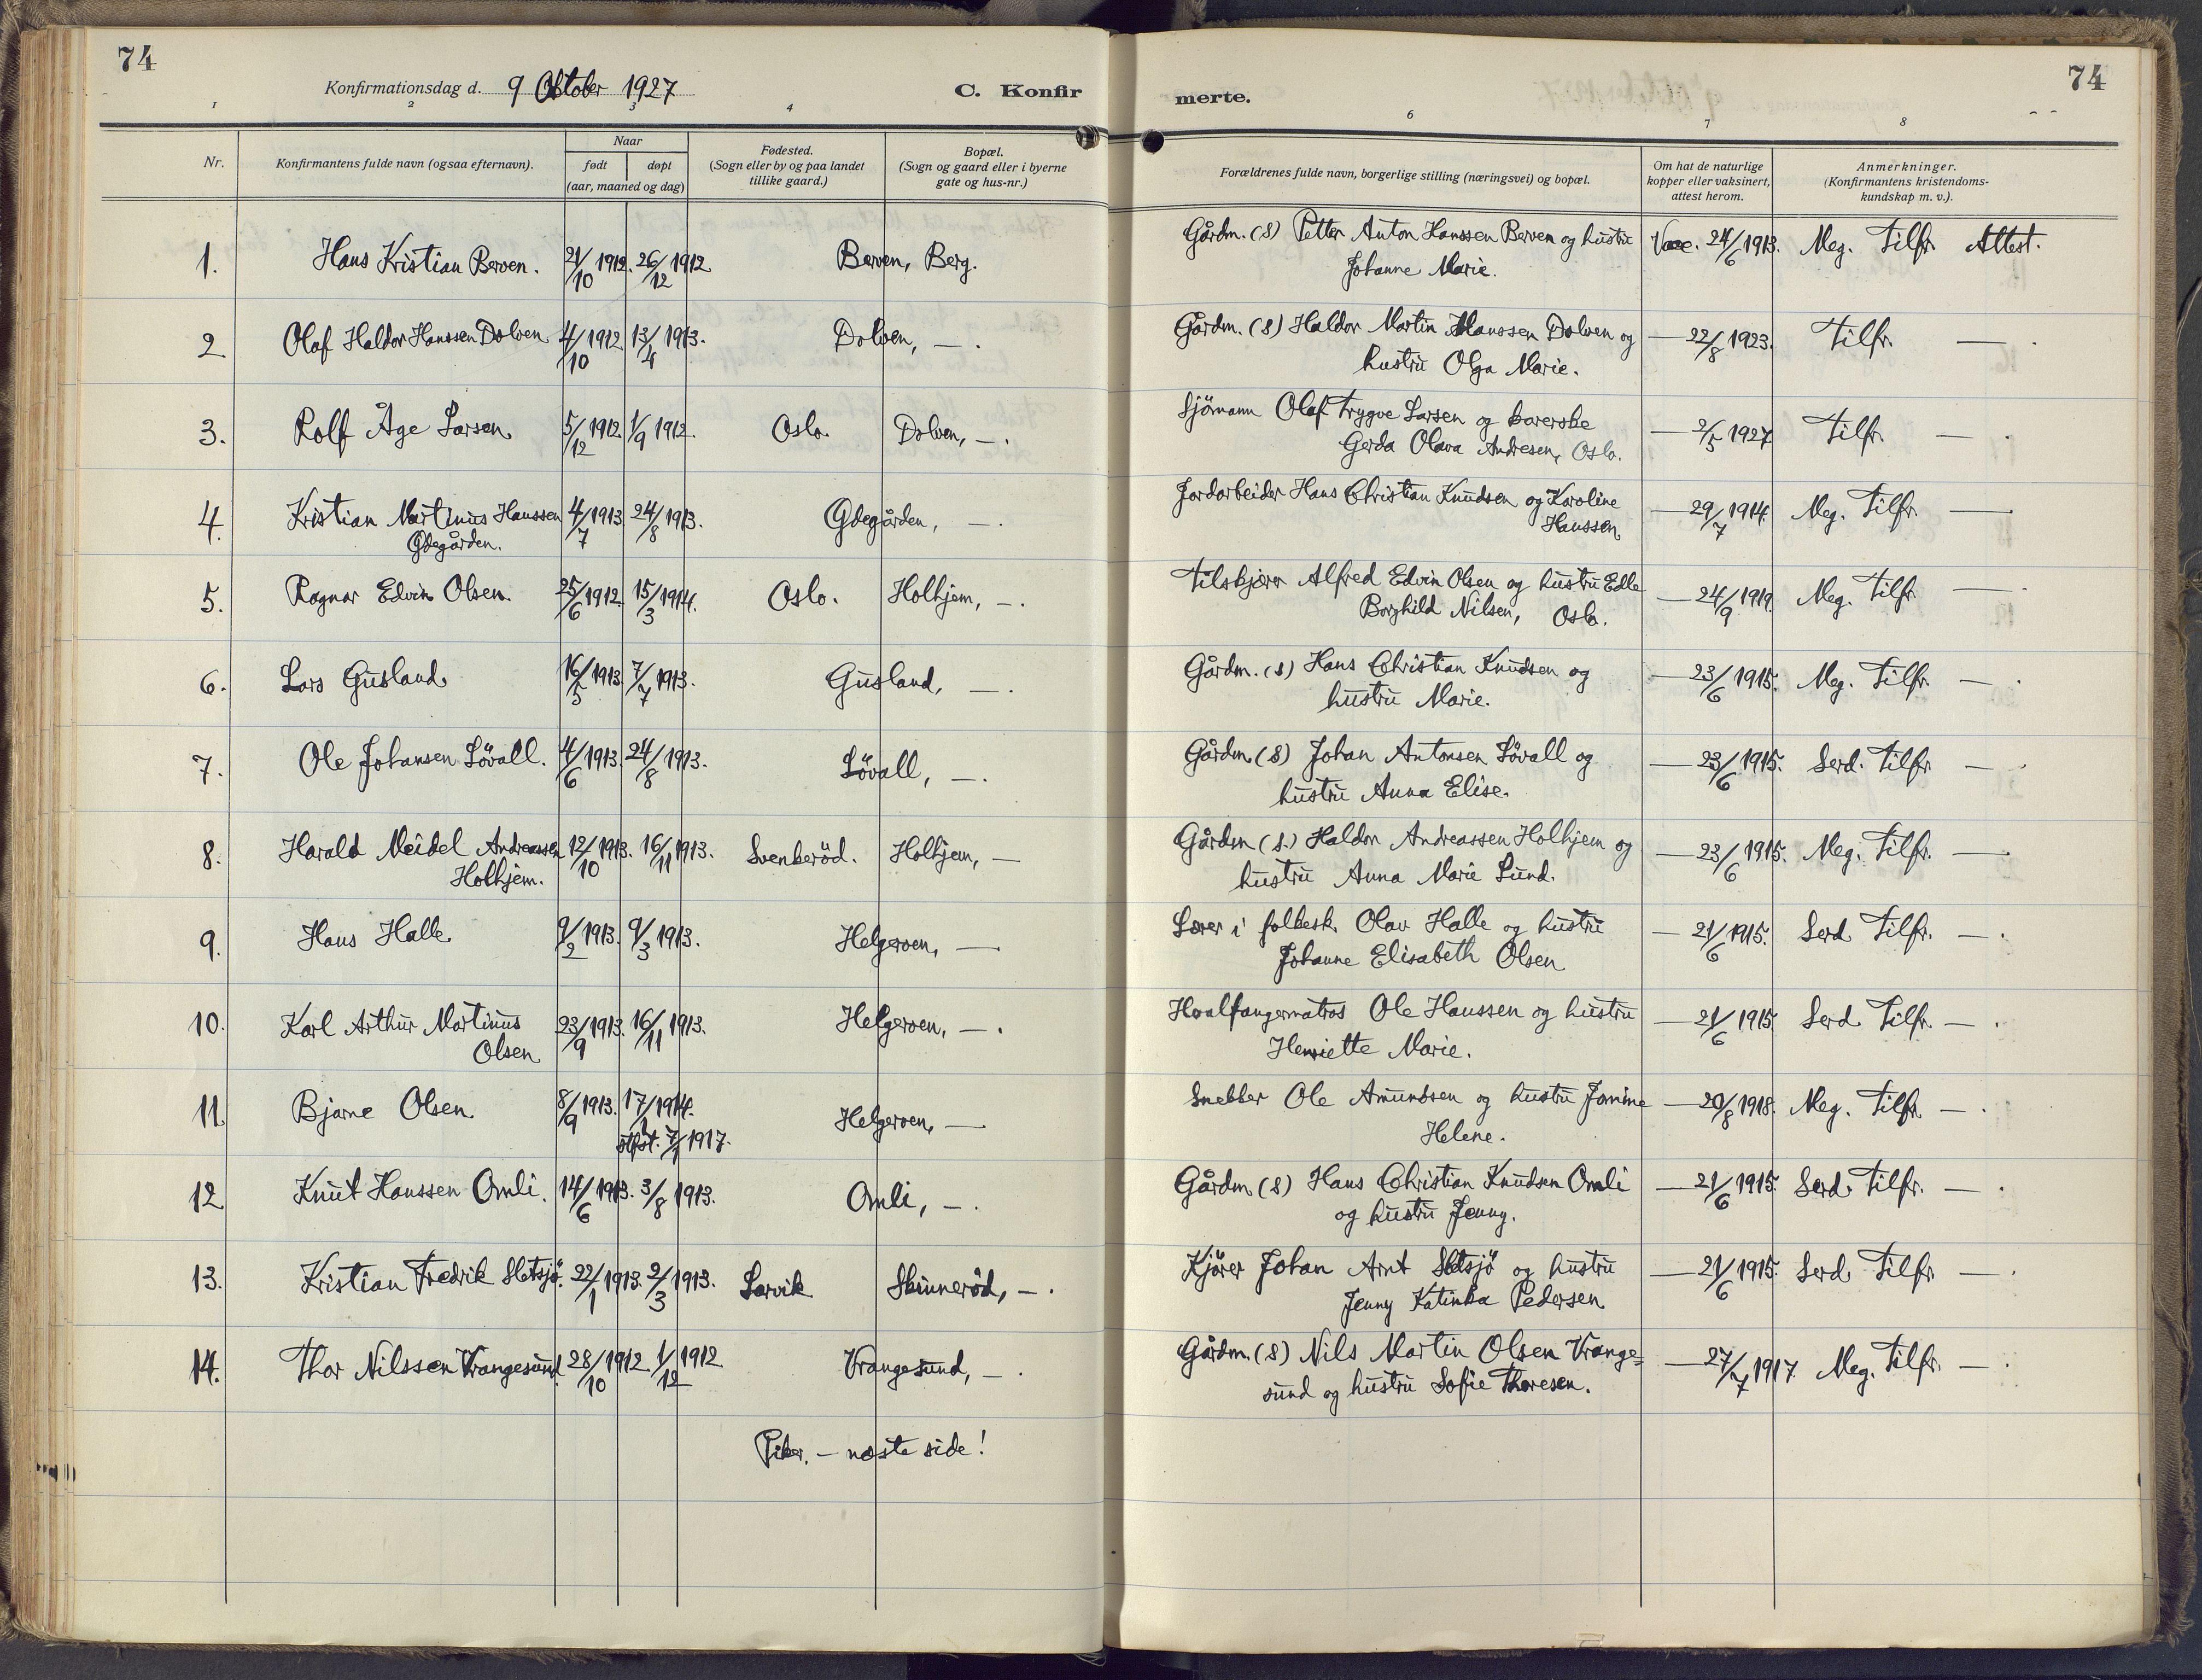 74
Konfirmationsdag d. 9 Oktober 1927
C. Konfir
1 2 3 4
Nr.
Konfirmantens fulde navn (ogsaa efternavn).
Naar
født døpt
(aar, maaned og dag)
Fødested.
(Sogn eller by og paa landet
tillike gaard.)
Bopæl.
(Sogn og gaard eller i byerne
gate og hus-nr.)
1. Hans Kristian Berven. 21/10 1912. 26/12 1912 Berven, Berg.
2 Olaf Haldor Hanssen Dolven 4/10 1912. 13/4 1913. Dolven, — .
3. Rolf Åge Larsen 5/12 1912. 1/9 1912. Oslo. Dolven, — .
4. Kristian Martinus Hanssen 4/7 1913 24/8 1913. Ødegården, — .
Ødegården.
5. Ragnar Edvin Olsen. 25/6 1912. 15/3 1914. Oslo. Holhjem, — .
6. Lars Gusland 16/5 1913. 7/7 1913. Gusland, — .
7. Ole Johansen Lövall. 4/6 1913. 24/8 1913. Lövall, — .
8. Harald Meidel Andreassen 12/10 1913. 16/11 1913. Svenkeröd. Holhjem, —
Holhjem.
9. Hans Halle 9/2 1913. 9/3 1913. Helgeroen, —
10. Karl Arthur Martinus 23/9 1913. 16/11 1913. Helgeroen, — .
Olsen
11. Bjarne Olsen. 8/9 1913. 17/1 1914. Helgeroen, —
stfst. 7/1 1917.
12 Knut Hanssen Omli. 14/6 1913. 3/8 1913. Omli, — .
13. Kristian Fredrik Sletsjö. 22/1 1913. 2/3 1913. Larvik Skinneröd, — .
14. Thor Nilssen Vrangesund 28/10 1912. 1/12 1912 Vrangesund, — .
Piker. — næste side!
74
merte.
6 7 8
Forældrenes fulde navn, borgerlige stilling (næringsvei) og bopæl.
Om hat de naturlige
kopper eller vaksinert,
attest herom.
Anmerkninger.
(Konfirmantens kristendoms-
kundskap m. v.).
Gårdm. (S) Petter Anton Hanssen Berven og hustru Vacc. 24/6 1913. Meg. Tilfr. Attest.
Johanne Marie.
Gårdm. (S) Haldor Martin Hanssen Dolven og — 22/8 1923. Tilfr. — .
hustru Olga Marie.
Sjömann Olaf Trygve Larsen og — 2/5 1927 Tilfr. — .
Gerda Olava Andresen, Oslo.
Jordarbeider Hans Christian Knudsen og Karoline — 29/7 1914. Meg. Tilfr. —
Hanssen
Tilskjærer Alfred Edvin Olsen og hustru Edle — 24/9 1919. Meg. Tilfr. — .
Borghild Nilsen, Oslo.
Gårdm. (S) Hans Christian Knudsen og — 23/6 1915. Meg. Tilfr. — .
hustru Marie.
Gårdm. (S) Johan Antonsen Lövall og — 23/6 1915. Serd. Tilfr. — .
hustru Anna Elise.
Gårdm (S.) Haldor Andreassen Holhjem og — 23/6 1915. Meg. Tilfr. —
hustru Anna Marie Lund.
Lærer i folkesk. Olav Halle og hustru — 21/6 1915. Serd Tilfr. — .
Johanne Elisabeth Olsen
Hvalfangermatros Ole Hanssen og hustru — 21/6 1915 Serd. Tilfr. — .
Henriette Marie.
Snekker Ole Amundsen og hustru Janine — 20/8 1918. Meg. Tilfr. — .
Helene.
Gårdm (S) Hans Christian Knudsen Omli — 21/6 1915. Serd Tilfr. — .
og hustru Jenny.
Kjörer Johan Arnt Sletsjö og hustru — 21/6 1915. Serd Tilfr. — .
Jenny Katinka Pedersen
Gårdm. (S) Nils Martin Olsen Vrange= — 27/7 1917 Meg. Tilfr. — .
sund og hustru Sofie Thoresen.